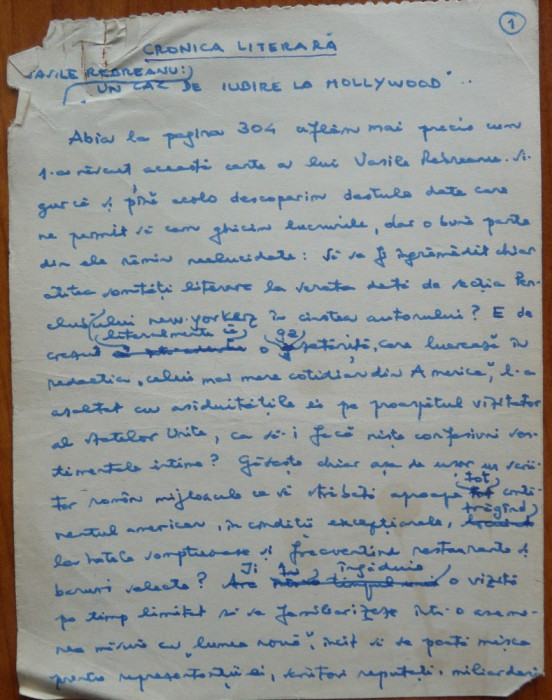 1
CRONICA LITERARĂ
VASILE REBREANU:
"UN CAZ DE IUBIRE LA HOLLYWOOD"
Abia la pagina 304 aflăm mai precis cum
s-a născut această carte a lui Vasile Rebreanu. Si-
gur că și pînă acolo descoperim destule date care
ne permit să cam ghicim lucrurile, dar o bună parte
din ele rămîn neelucidate: Să se fi îngrămădit chiar
atîtea somități literare la serata dată de secția Pen-
clubului new-yorkez în cinstea autorului? E de
crezut literalmente că o gazetăriță, care lucrează în
redacția „celui mai mare cotidian din America", l-a
asaltat cu asiduitățile ei pe proaspătul vizitator
al Statelor Unite, ca să-i facă niște confesiuni sen-
timentale intime? Găsește chiar așa de ușor un scrii-
tor român mijloacele ca să străbată aproape tot conti-
nentul american, în condiții excepționale, trăgînd
la hotele somptuoase și frecventînd restaurante și
baruri selecte? Îi îngăduie o vizită
pe timp limitat să se familiarizeze într-o aseme-
nea măsură cu „lumea nouă", încît să se poată mișca
printre reprezentanții ei, scriitori reputați, miliardari